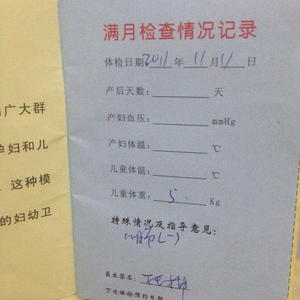 广大群
孕妇和儿
这种模
的妇幼卫
满月检查情况记录
体检日期2011年11月11日
产后天数: 天
产妇血压: mmHg
产妇体温: ℃
儿童体温: ℃
儿童体重: 5 Kg
特殊情况及指导意见:
(-)
医生签名:
下次体检预约日期